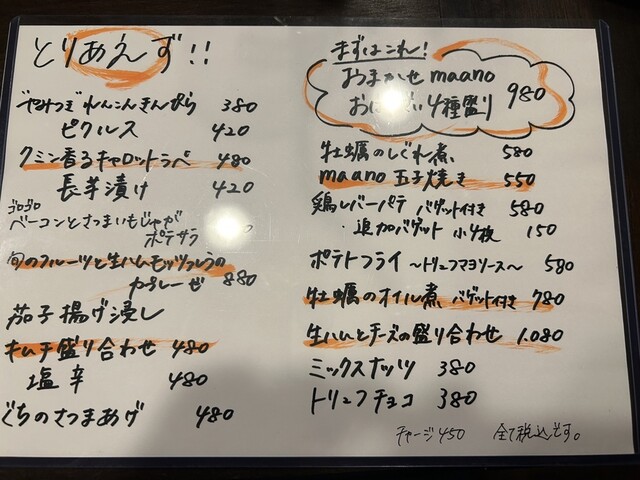 とりあえず!!
やみつき れんこんきんぴら 380
ピクルス 420
クミン香るキャロットラペ 480
長芋漬け 420
ゴロゴロ
ベーコンとさつまいもじゃが
ポテサラ
旬のフルーツと生ハムモッツァレラの
カプレーゼ 880
茄子揚げ浸し
キムチ盛り合わせ 480
塩辛 480
ぐちのさつまあげ 480
まずはこれ!
おまかせ maano
4種盛り 980
牡蠣のしぐれ煮 580
maano 玉子焼き 550
鶏レバーパテ バゲット付き 580
・追加バゲット 小4枚 150
ポテトフライ ~トリュフマヨソース~ 580
牡蠣のオイル煮 バゲット付き 780
生ハムとチーズの盛り合わせ 1.080
ミックスナッツ 380
トリュフチョコ 380
チャージ450 全て税込です。